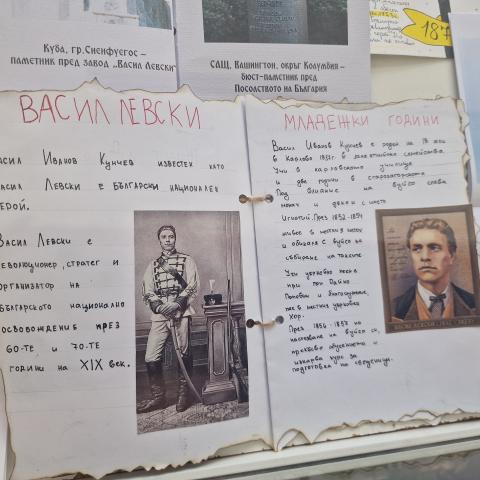 Куба, гр.Сиенфуегос –
паметник пред завод „Васил Левски"
САЩ, Вашингтон, окръг Колумбия –
бюст-паметник пред
Посолството на България
187
ВАСИЛ ЛЕВСКИ
Иванов Кунчев известен като
Васил Левски е български национален
герой.
Васил Левски е
революционер, стратег и
организатор на
българското национално
освобождение през
60-те и 70-те
години на XIX век.
МЛАДЕЖКИ ГОДИНИ
Васил Иванов Кунчев е роден на 18 юли
в Карлово 1837г. в занаятчийско семейство.
Учи в карловското училище
и две години в старозагорското.
Под влияние на вуйчо става
монах и дякон с името
Игнатий. През 1852-1854
живее в метоха
и обикаля с вуйчо си
събиране на таксите.
Учи църковно пеене
при поп Райко
Попович и благодарение,
пее в местния църковен
хор.
През 1856-1857 по
настояване на вуйчо си,
прекъсва обучението и
изкарва курс за
подготовка на свещеници.